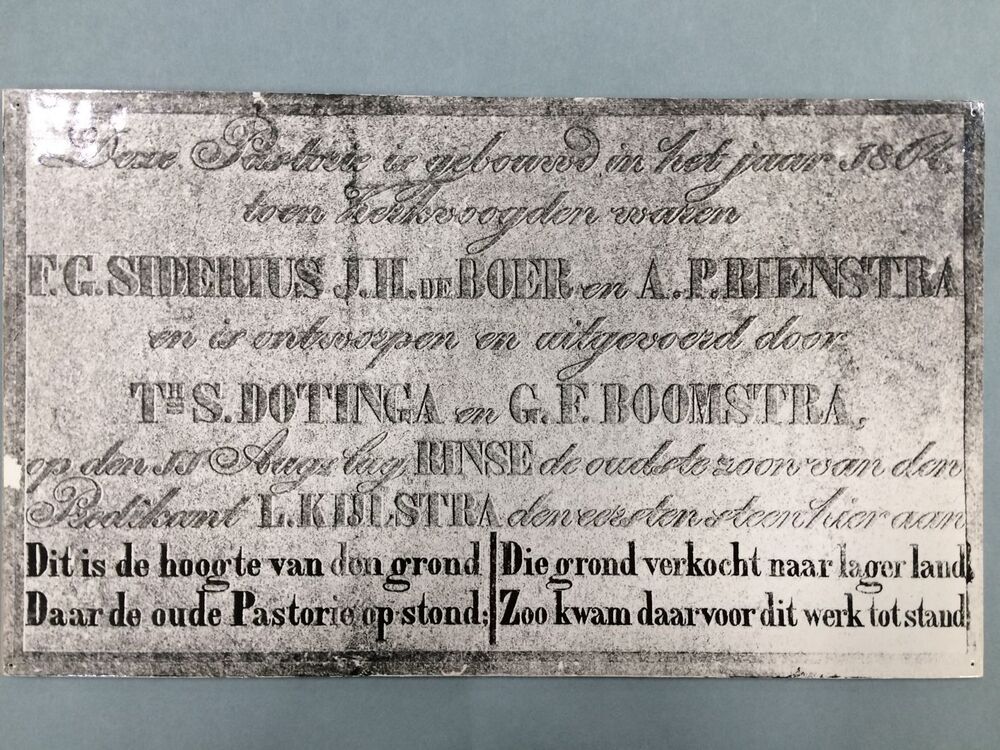 Deze Pastorie is gebouwd in het jaar 186
toen Kerkvoogden waren
F.G. SIDERIUS J.H. DE BOER en A.P. RIENSTRA
en is ontworpen en uitgevoerd door
TH S. DOTINGA en G.F. BOOMSTRA,
op den 11 Augs lag, RINSE de oudste zoon van den
Predikant L. KIJLSTRA den eersten steen hier aan
Dit is de hoogte van den grond | Die grond verkocht naar lager land,
Daar de oude Pastorie op stond; | Zoo kwam daarvoor dit werk tot stand